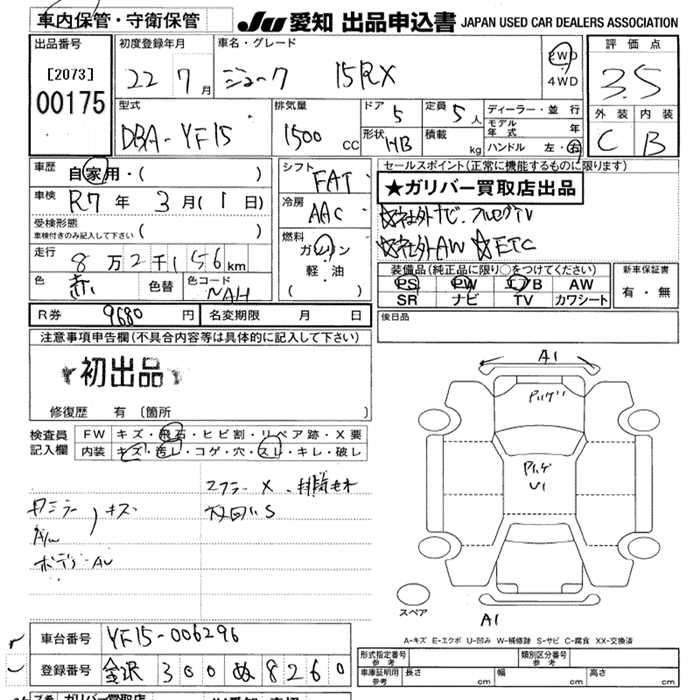 車内保管・守衛保管
JU 愛知 出品申込書 JAPAN USED CAR DEALERS ASSOCIATION
出品番号
[2073]
00175
初度登録年月
22 7月
車名・グレード
ジューク 15RX
2WD
4WD
評価点
3.5
外装 内装
C B
型式
DBA-YF15
排気量
1500 cc
ドア 5
形状 HB
定員 5人
積載 kg
ディーラー・並行
モデル年式 年
ハンドル 左・右
車歴 自家用・( )
車検 R7年 3月( 1日)
受検形態
車検付きのみ記入して下さい ( )
走行 8万2千156km
色 赤 色替 色コード NAH
シフト FAT
冷房 AAC
燃料 ガソリン
軽・油
( )
セールスポイント(正常に機能するものに限ります)
★ガリバー買取店出品
☆社外ナビ.フルセグTV
☆社外AW ☆ETC
装備品(純正品に限り○をつけてください)
PS PW エアB AW
SR ナビ TV カワシート
新車保証書
有・無
R券 9680円 名変期限 月 日
後日品
注意事項申告欄(不具合内容等は具体的に記入して下さい)
初出品
修復歴 有 〔箇所 〕
検査員記入欄
FW キズ・飛石・ヒビ割・リペア跡・X要
内装 キズ・汚レ・コゲ・穴・スレ・キレ・破レ
キズ
A1
U1
A1
スペア
A-キズ E-エクボ U-凹み W-補修跡 S-サビ C-腐食 XX-交換済
車台番号 YF15-006296
登録番号 金沢 300 ぬ 8260
形式指定番号 参考
類別区分番号 参考
車庫証明用 参考 長さ cm 幅 cm 高さ cm
ガリバー買取店